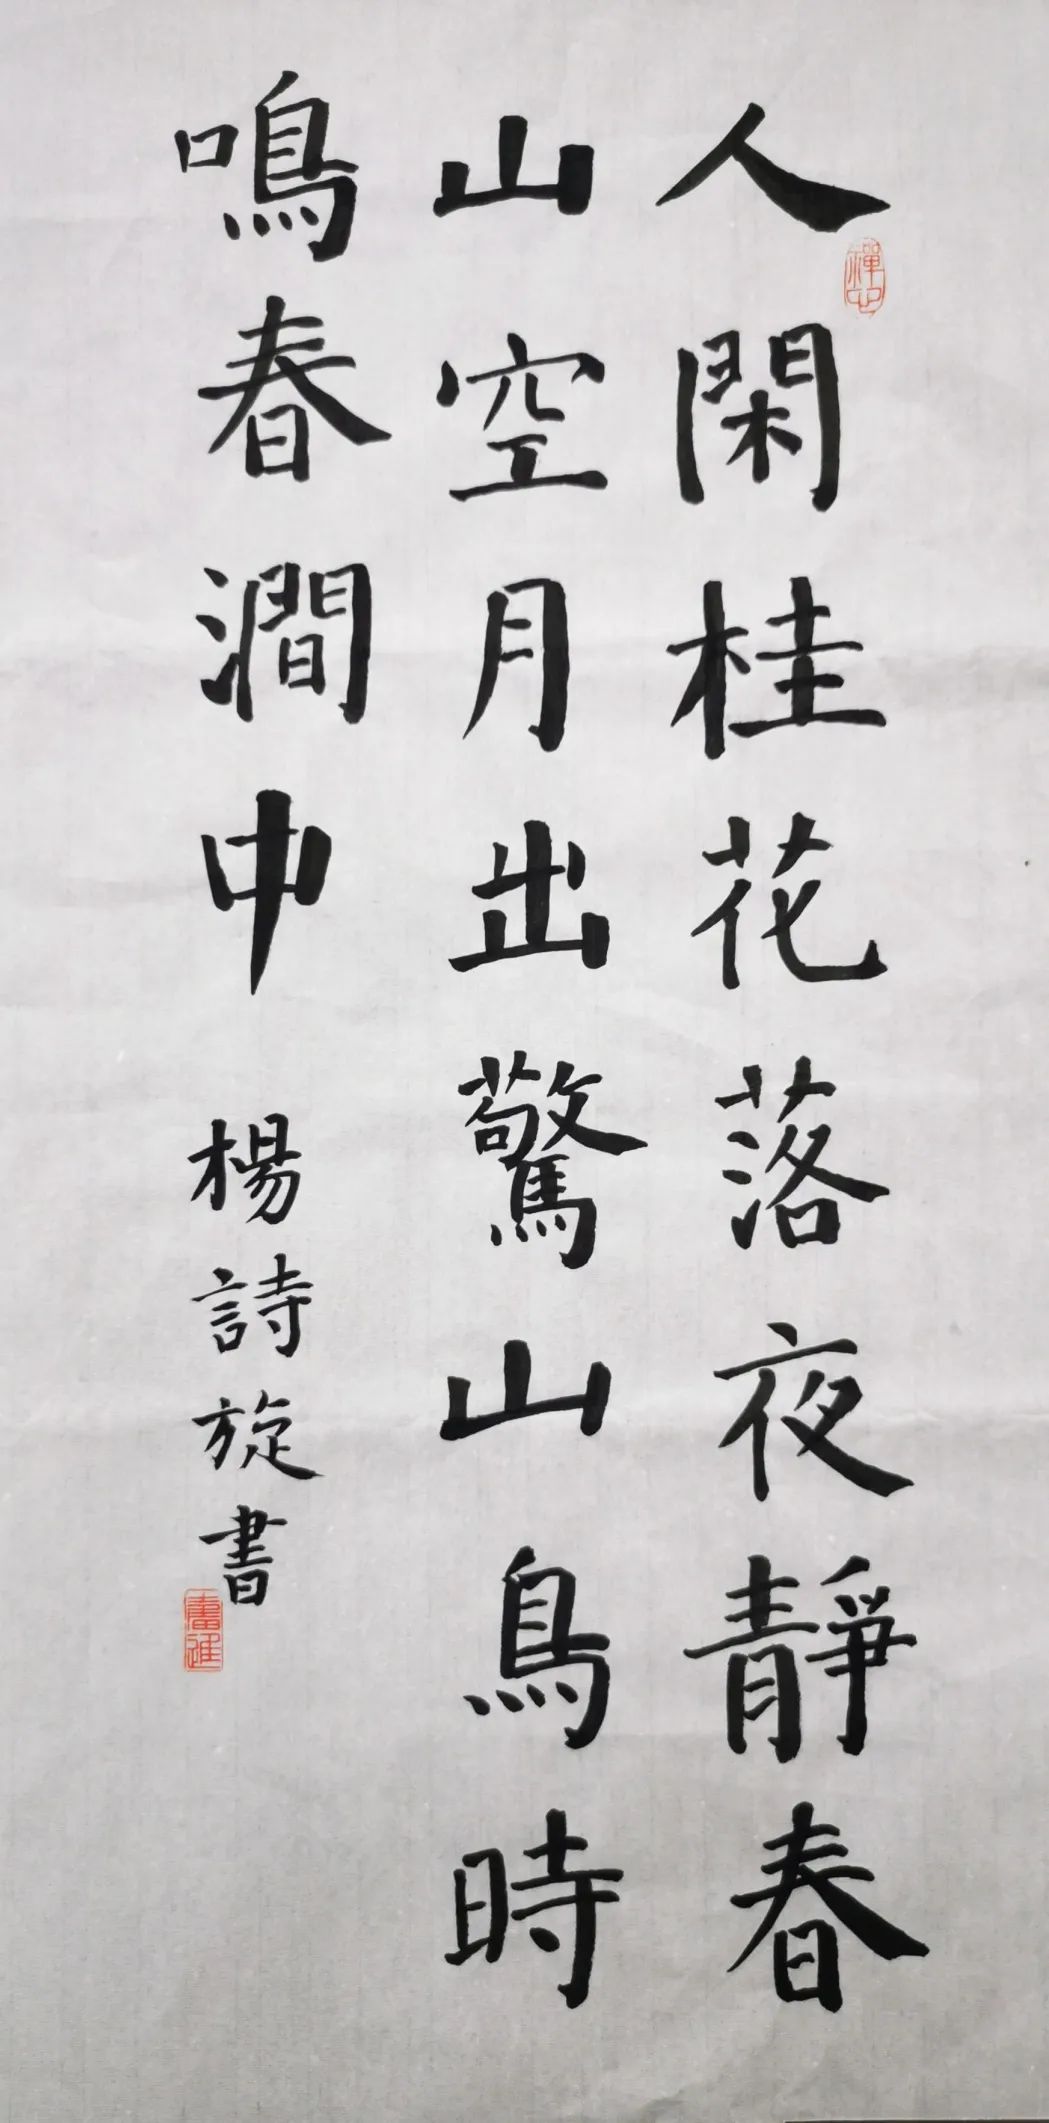 人閑桂花落夜靜春
山空月出驚山鳥時
鳴春澗中
楊詩旋書
禪心